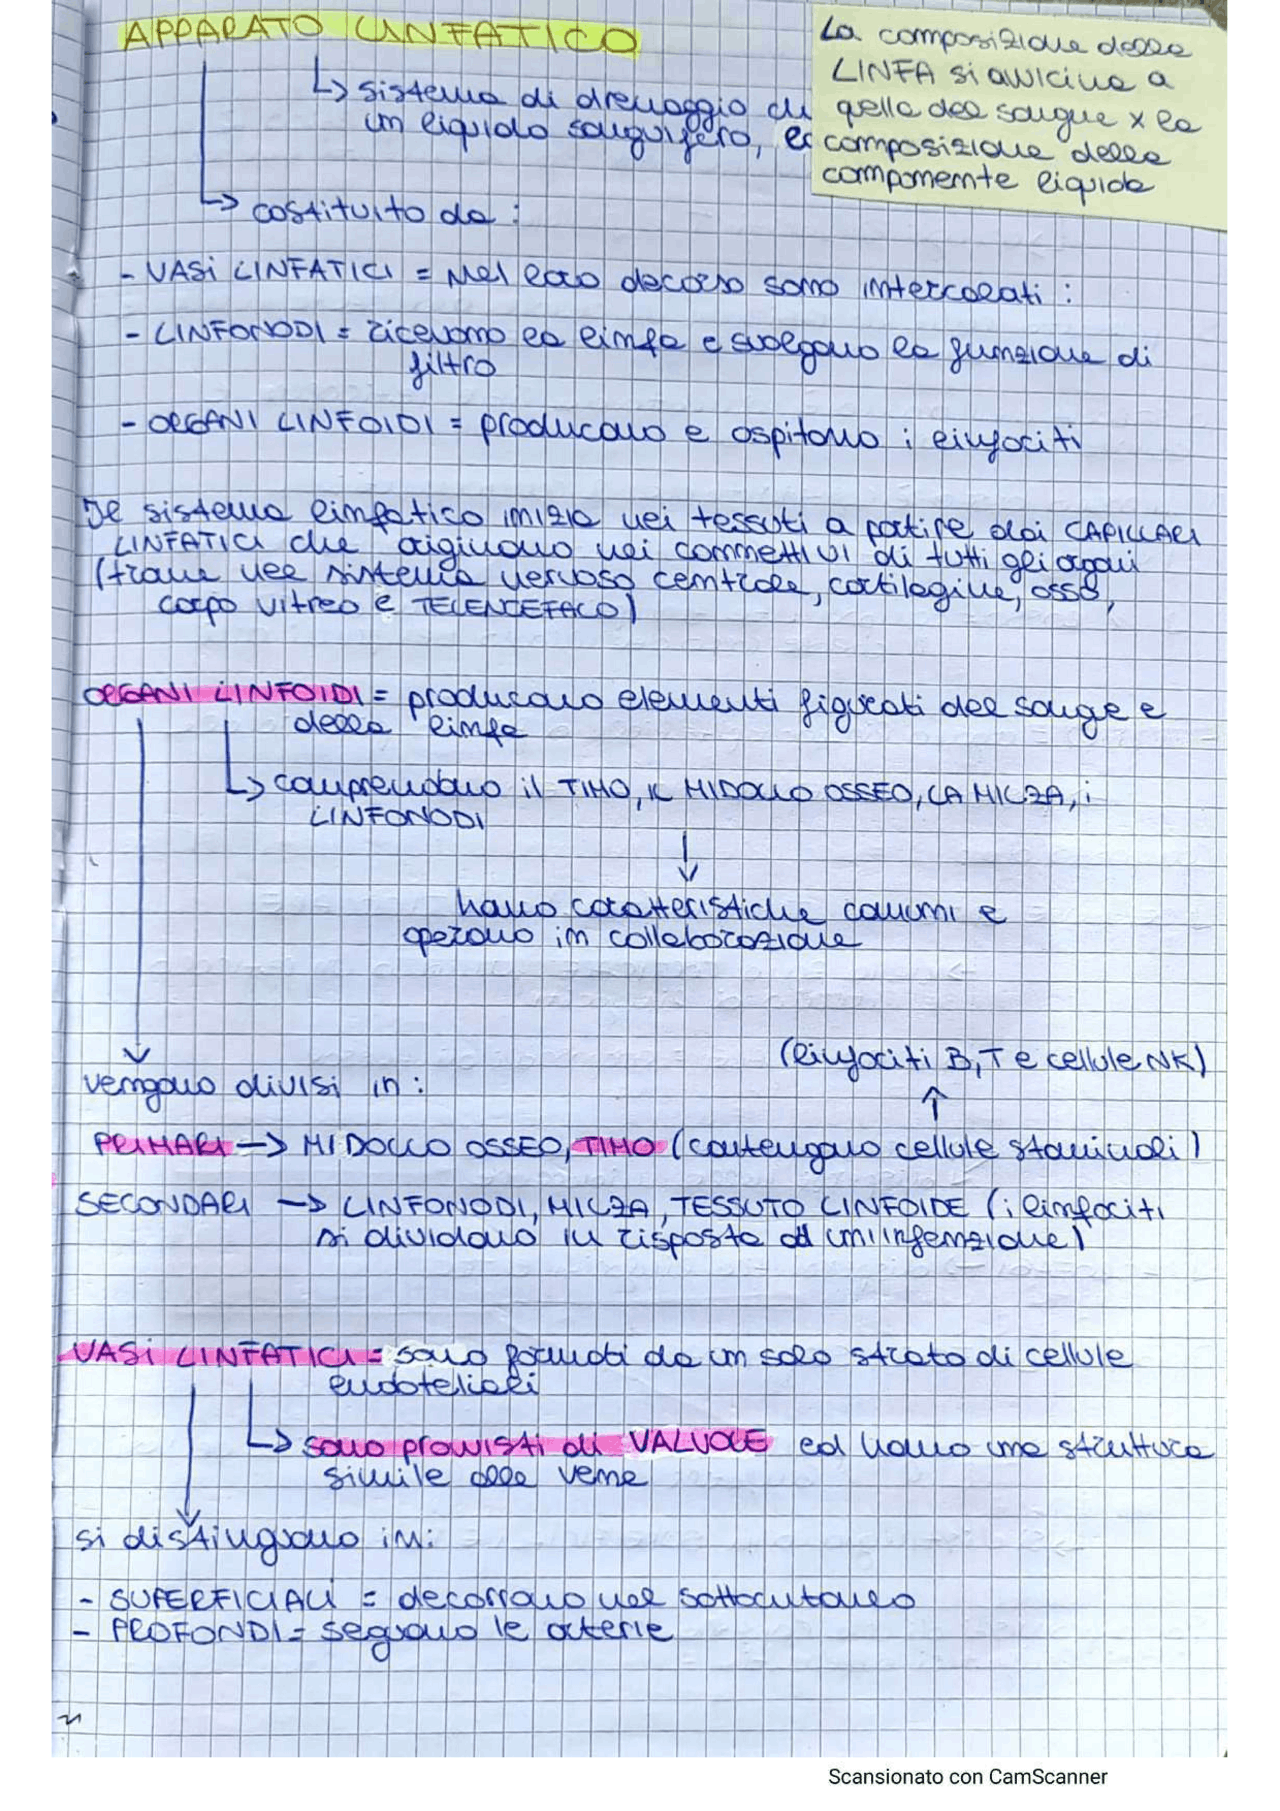 APPARATO LINFATICO
↳ sistema di drenaggio di
un liquido sanguifero,
La composizione della
LINFA si avvicina a
quella del sangue x la
composizione della
componente liquida
↳ costituito da :
- VASI LINFATICI = Nel loro decorso sono intercalati :
- LINFONODI = ricevono la linfa e svolgono la funzione di
filtro
- ORGANI LINFOIDI = producono e ospitano i linfociti
Il sistema linfatico inizia nei tessuti a partire dai CAPILLARI
LINFATICI che originano nei connettivi di tutti gli organi
(trane nel sistema nervoso centrale, cartilagine, osso,
corpo vitreo e TELENCEFALO)
ORGANI LINFOIDI = producono elementi figurati del sange e
della linfa
↳ comprendono il TIMO, IL MIDOLLO OSSEO, LA MILZA, i
LINFONODI
↓
hanno caratteristiche comuni e
operano in collaborazione
vengono divisi in :
(linfociti B, T e cellule NK)
↑
PRIMARI → MIDOLLO OSSEO, TIMO (contengono cellule staminali)
SECONDARI → LINFONODI, MILZA, TESSUTO LINFOIDE (i linfociti
si dividono in risposta ad un'infenzione)
VASI LINFATICI = sono formati da un solo strato di cellule
endoteliali
↳ sono provvisti di VALVOLE ed hanno una struttura
simile alle vene
si distinguono in:
- SUPERFICIALI = decorrono nel sottocutaneo
- PROFONDI = seguono le arterie
Scansionato con CamScanner